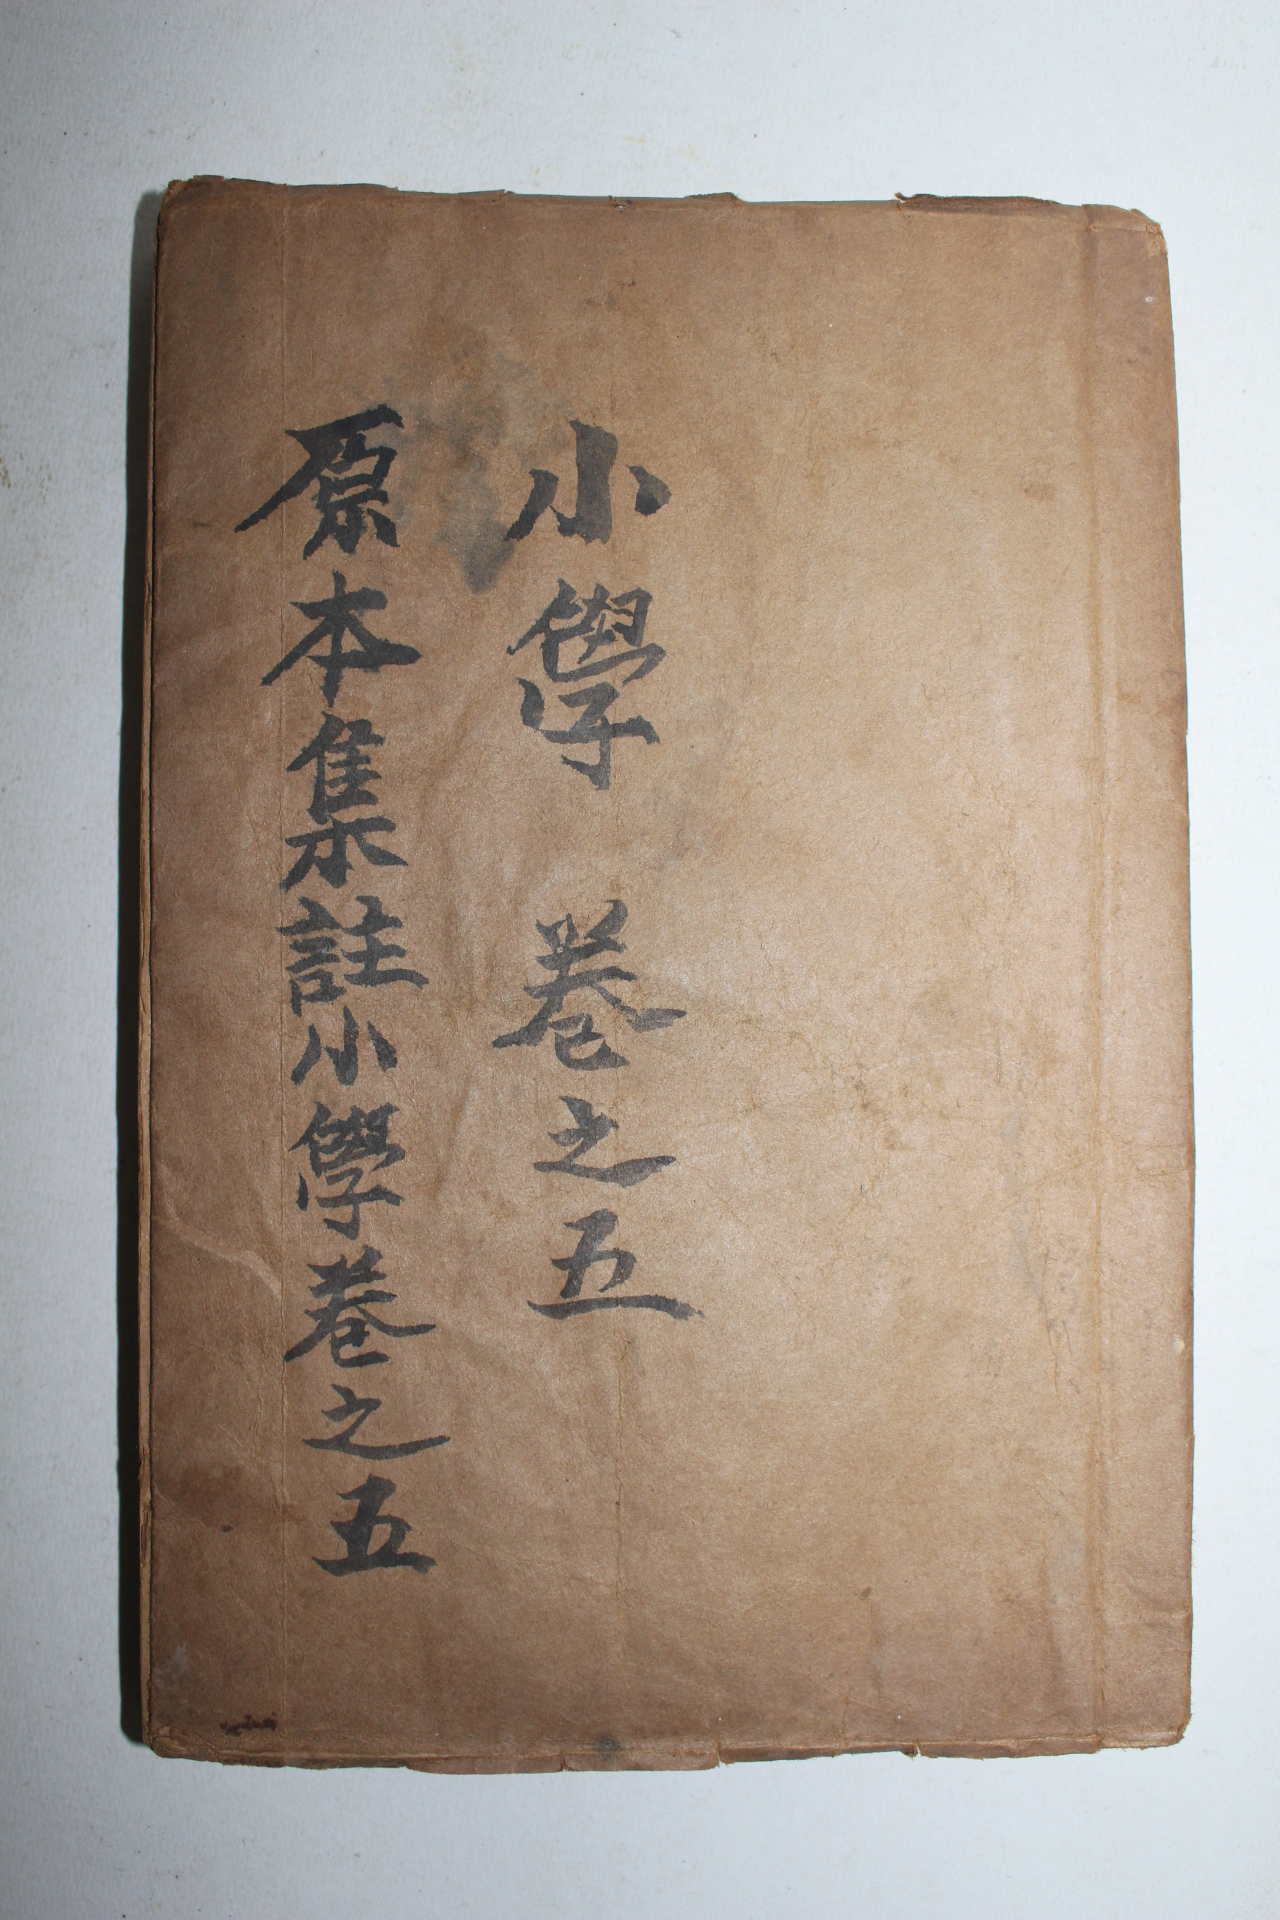 小學 卷之五
原本集註小學卷之五